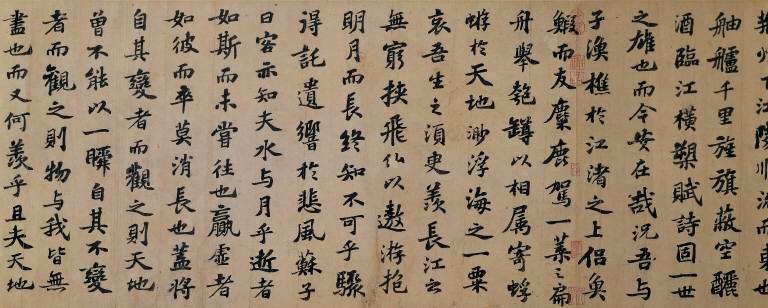 荊州下江陵順流而東也
舳艫千里旌旗蔽空釃
酒臨江橫槊賦詩固一世
之雄也而今安在哉況吾與
子漁樵於江渚之上侶魚
鰕而友麋鹿駕一葉之扁
舟舉匏罇以相属寄蜉
蝣於天地渺浮海之一粟
哀吾生之湏臾羨長江之
無窮挾飛仙以遨游抱
明月而長終知不可乎驟
得託遺響於悲風蘇子
曰客亦知夫水與月乎逝者
如斯而未嘗往也贏虛者
如彼而卒莫消長也蓋將
自其變者而觀之則天地
曾不能以一瞬自其不變
者而觀之則物與我皆無
盡也而又何羨乎且夫天地